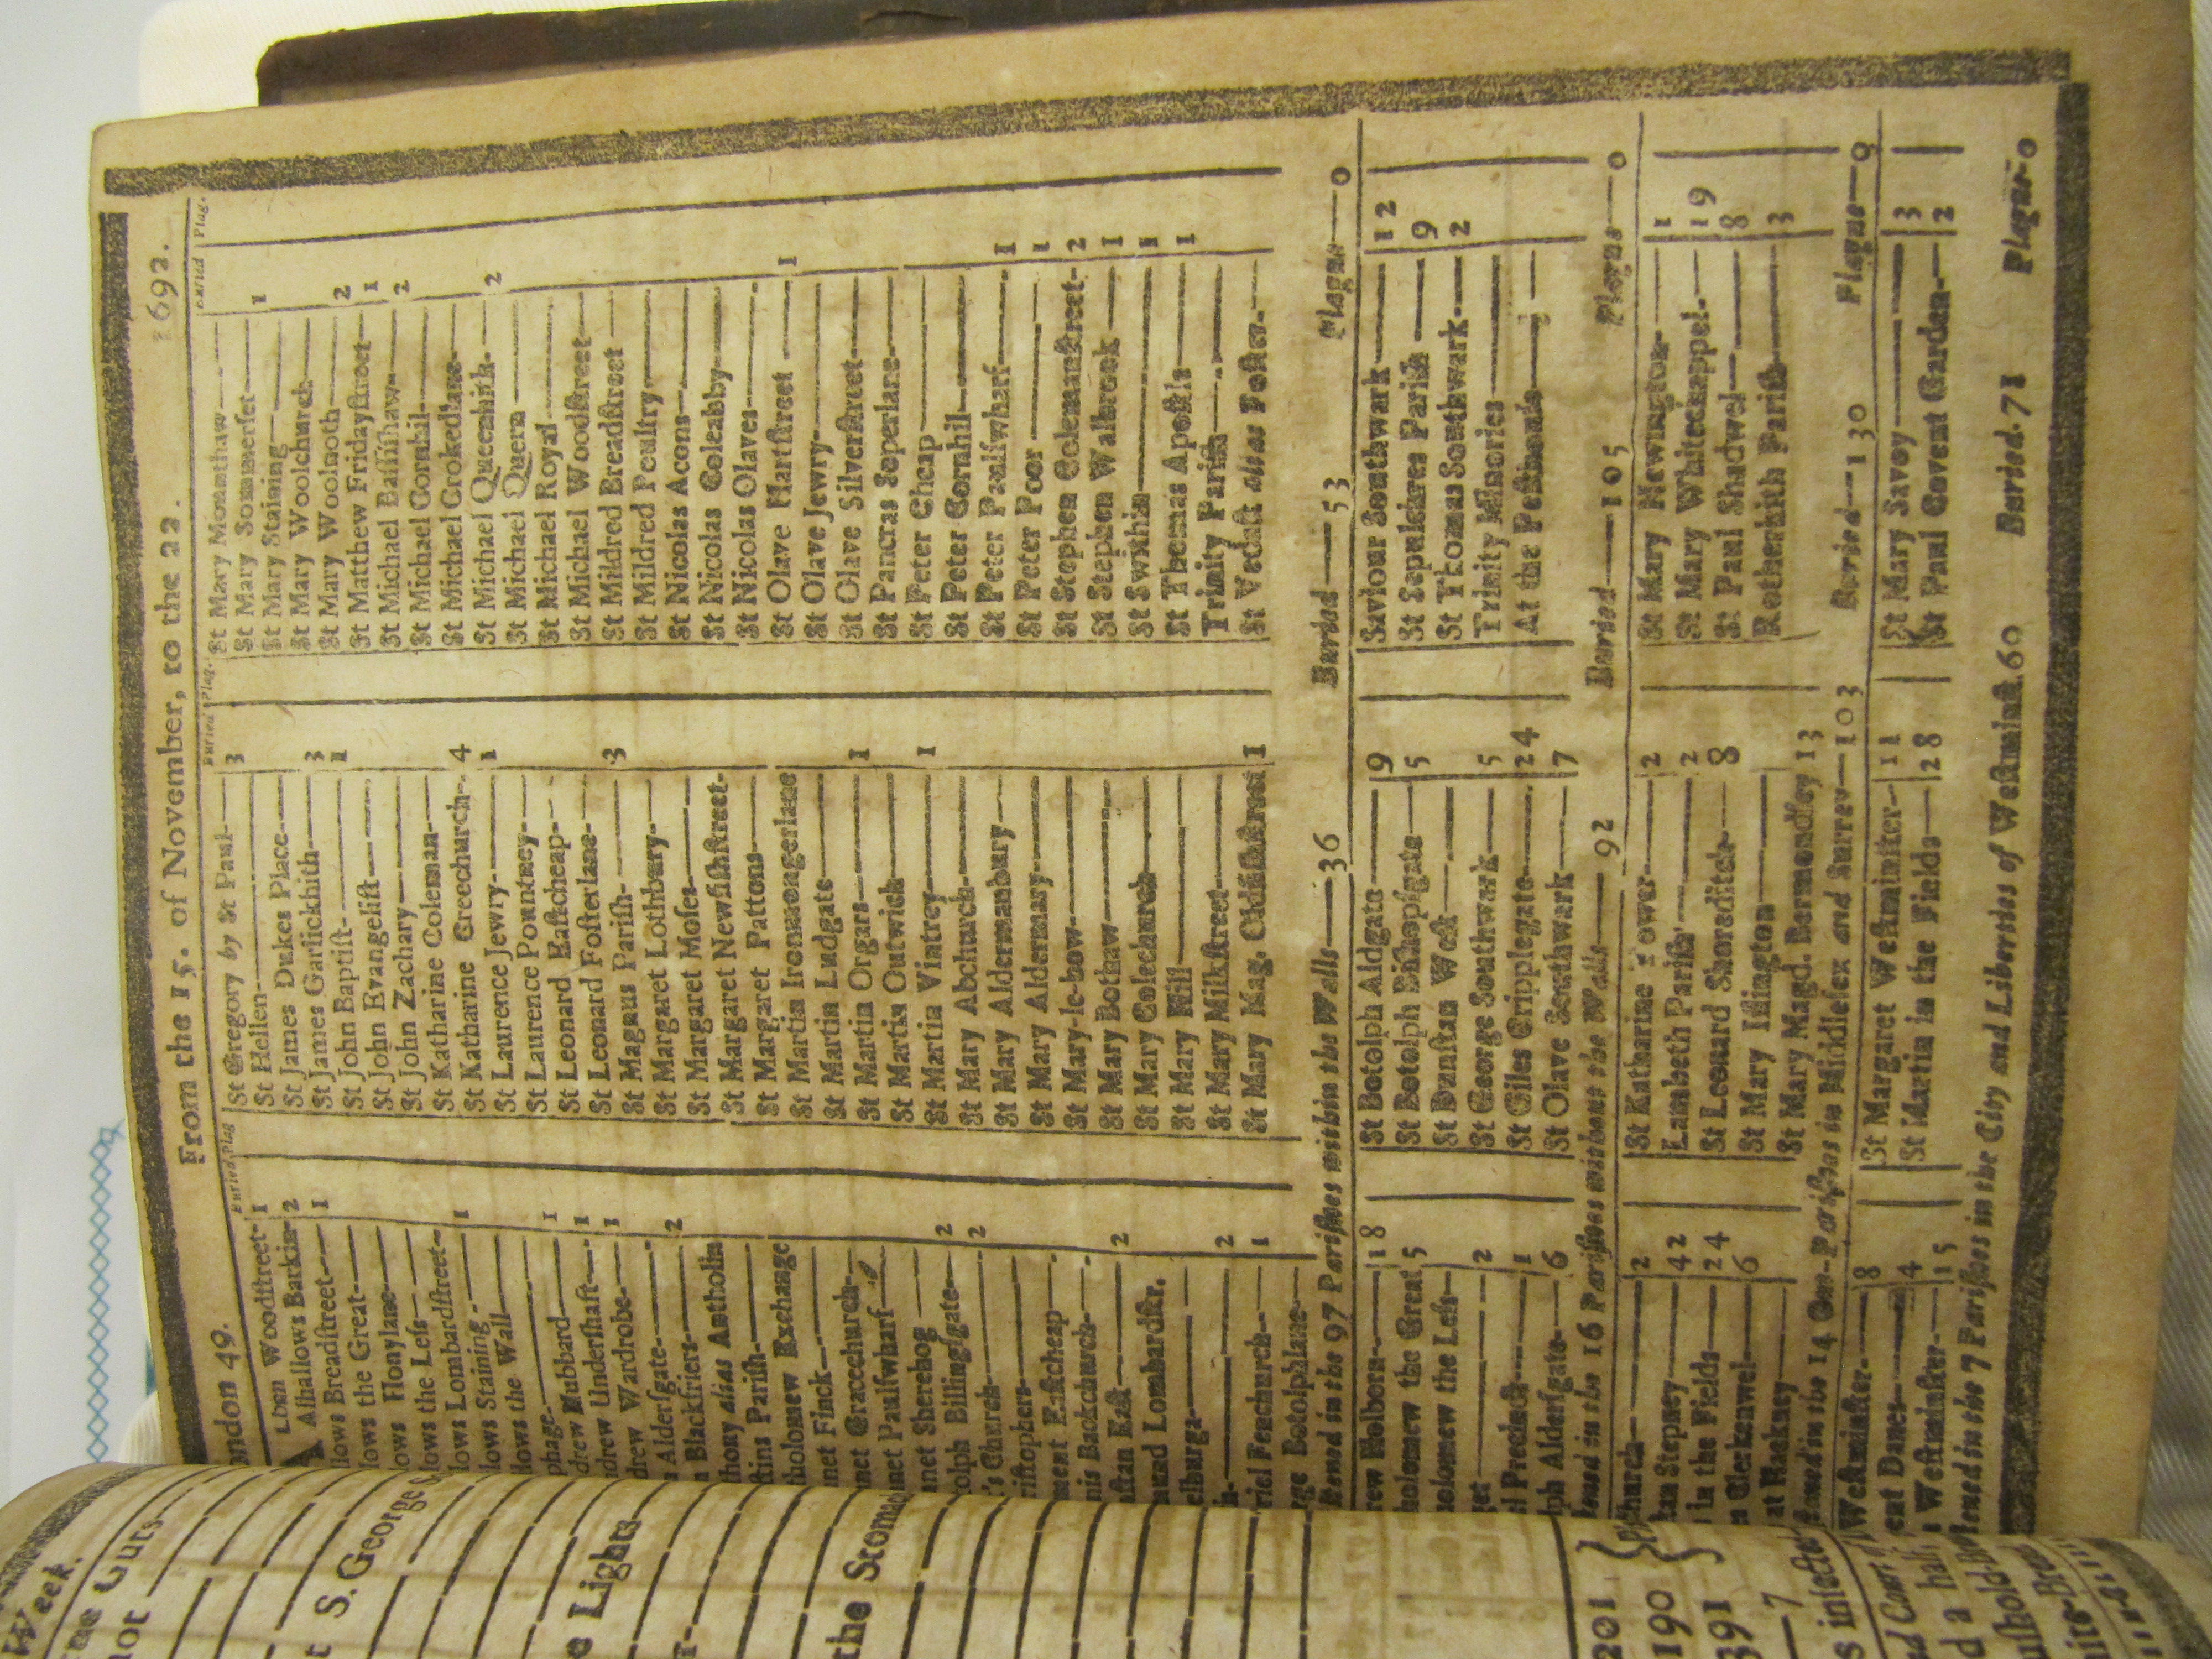 London 49. From the 15. of November, to the 22. 1692.
Buried Plag
Lban Woodstreet 1
Alhallows Barkin 2
llows Breadstreet 1
lows the Great
lows Honylane
lows the Less
lows Lombardstreet 1
lows Staining
lows the Wall
phage 1
drew Hubbard 1
ndrew Undershaft 1
drew Wardrobe 2
Aldersgate
n Blackfriers
thony alias Antholin
stins Parish
tholomew Exchange
net Finck
net Gracechurch
net Paulswharf
net Sherehog 2
tolph Billingsgate 2
's Church
ristophers
ment Eastcheap 2
nis Backchurch
nstan East
mund Lombardstr. 2
elburga 1
riel Fenchurch
rge Botolphlane
Buried Plag.
St Gregory by St Paul 3
St Hellen
St James Dukes Place
St James Garlickhith 3
St John Baptist 1
St John Evangelist
St John Zachary
St Katharine Coleman
St Katharine Creechurch 4
St Laurence Jewry 1
St Laurence Pountney
St Leonard Eastcheap
St Leonard Fosterlane
St Magnus Parish 3
St Margaret Lothbury
St Margaret Moses
St Margaret Newfishstreet
St Margaret Pattons
St Martin Ironmongerlane
St Martin Ludgate
St Martin Orgars 1
St Martin Outwich
St Martin Vintrey 1
St Mary Abchurch
St Mary Aldermanbury
St Mary Aldermary
St Mary-le-bow
St Mary Bothaw
St Mary Colechurch
St Mary Hill
St Mary Milkstreet
St Mary Mag. Oldfishstreet 1
Buried Plag.
St Mary Mounthaw
St Mary Sommerset 1
St Mary Staining
St Mary Woolchurch
St Mary Woolnoth 2
St Matthew Fridaystreet 1
St Michael Bassishaw 2
St Michael Cornhil
St Michael Crokedlane
St Michael Queenhith 2
St Michael Quern
St Michael Royal
St Michael Woodstreet
St Mildred Breadstreet
St Mildred Poultry
St Nicolas Acons
St Nicolas Coleabby
St Nicolas Olaves
St Olave Hartstreet 1
St Olave Jewry
St Olave Silverstreet
St Pancras Soperlane
St Peter Cheap
St Peter Cornhil
St Peter Paulswharf 1
St Peter Poor 1
St Stephen Colemanstreet 2
St Stephen Walbrook 1
St Swithin 1
St Thomas Apostle 1
Trinity Parish
St Vedast alias Foster
ristened in the 97 Parishes within the Walls 36 Buried 53 Plague 0
rew Holborn 18
tholomew the Great 5
tholomew the Less
get 2
l Precinct 1
lph Aldersgate 6
St Botolph Aldgate 9
St Botolph Bishopsgate 5
St Dunstan West
St George Southwark 5
St Giles Cripplegate 24
St Olave Southwark 7
Saviour Southwark 12
St Sepulchres Parish 9
St Thomas Southwark 2
Trinity Minories
At the Pesthouse
stened in the 16 Parishes without the Walls 92 Buried 105 Plague 0
church 2
an Stepney 42
in the Fields 24
Clerkenwel 6
at Hackney
St Katharine Tower 2
Lambeth Parish 2
St Leonard Shoreditch 8
St Mary Islington
St Mary Magd. Bermondsey 13
St Mary Newington 1
St Mary Whitechappel 19
St Paul Shadwel 8
Rotherhith Parish 3
stened in the 14 Out-Parishes in Middlesex and Surrey 103 Buried 130 Plague 0
Westminster 8
ent Danes 4
Westminster 15
St Margaret Westminster 11
St Martin in the Fields 28
St Mary Savoy 3
St Paul Covent Garden 2
stened in the 7 Parishes in the City and Liberties of Westminst. 60 Buried 71 Plague 0
Week.
the Guts
not
t S. George
e Lights
r
the Stoma
201
190
391
7
s infected
nd a hal